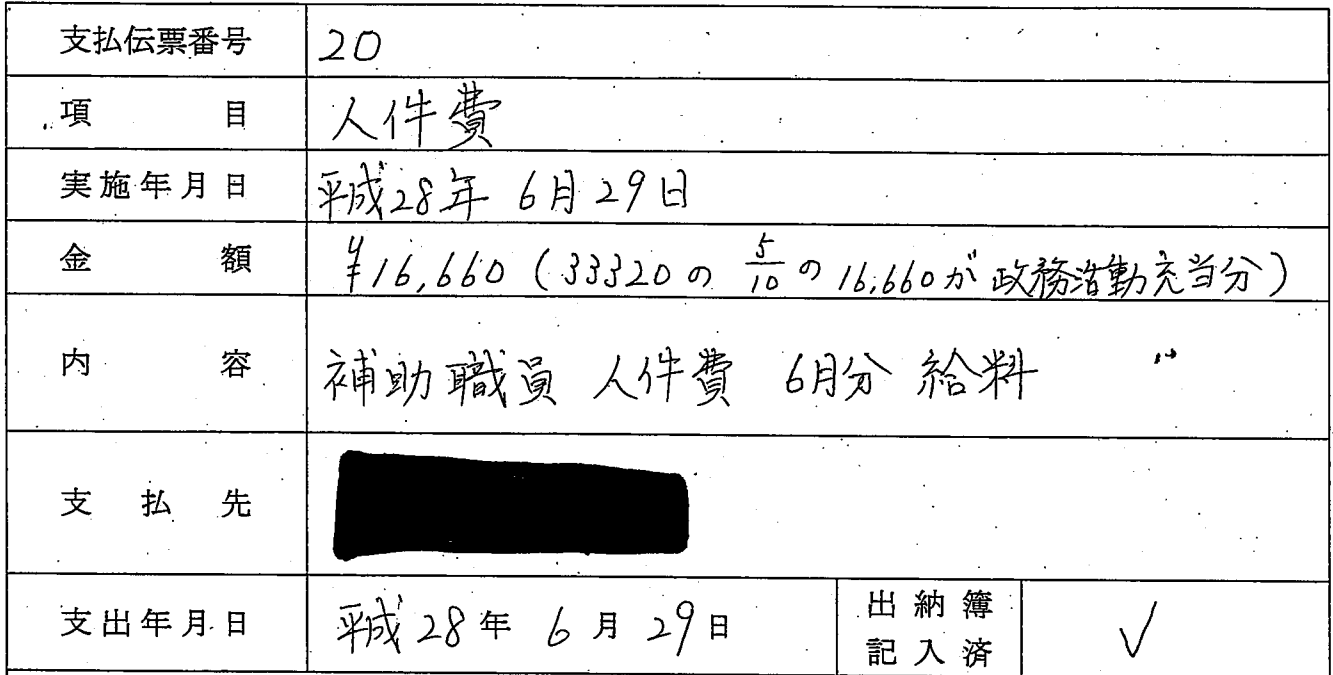 支払伝票番号 20
項目 人件費
実施年月日 平成28年 6月29日
金額 ¥16,660 (33320の 5/10 の 16,660が 政務活動充当分)
内容 補助職員 人件費 6月分 給料
支払先
支出年月日 平成 28年 6月 29日 出納簿記入済 ✓